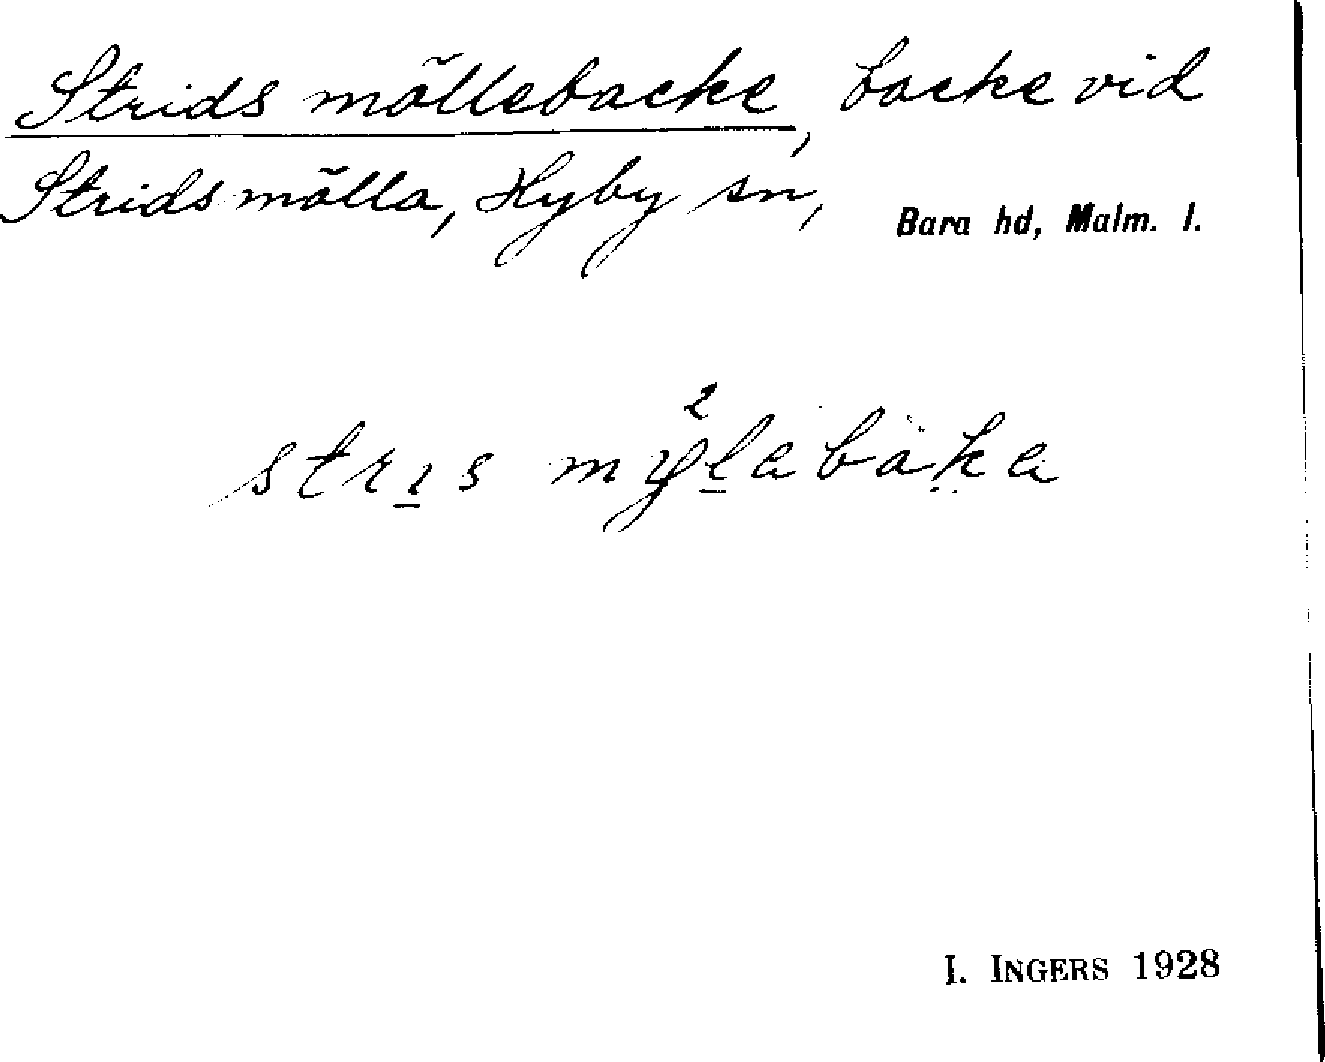 Strids möllebacke, backe vid
Strids mölla, Hyby sn, Bara hd, Malm. l.
strɩs mỿ²labaka
I. INGERS 1928